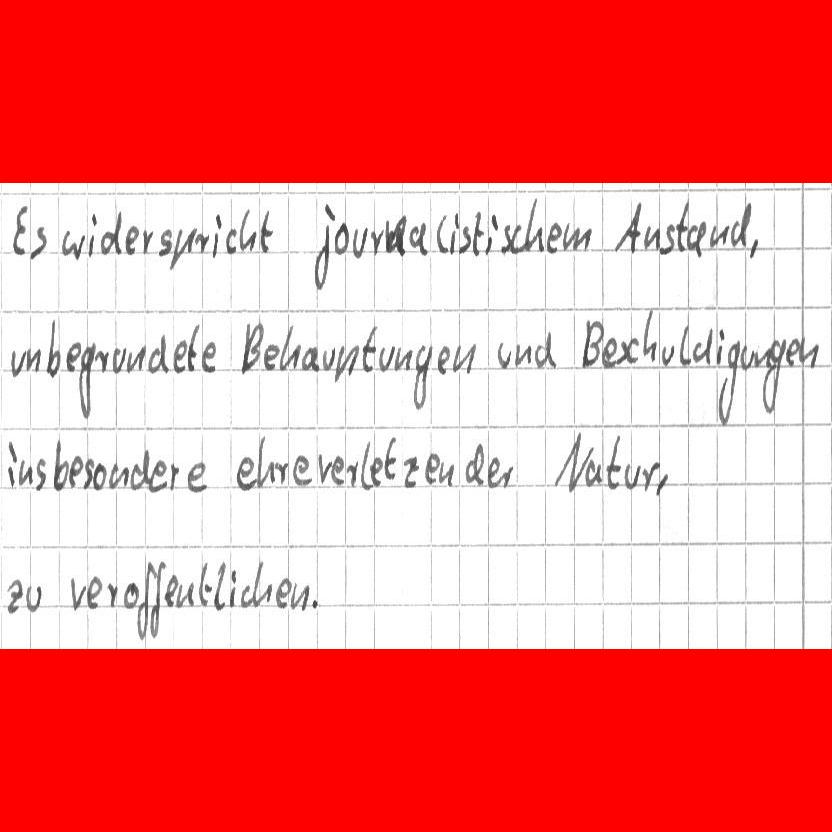 Es widerspricht journalistischem Anstand,
unbegrundete Behauptungen und Beschuldigungen
insbesondere ehreverletzender Natur,
zu veroffentlichen.